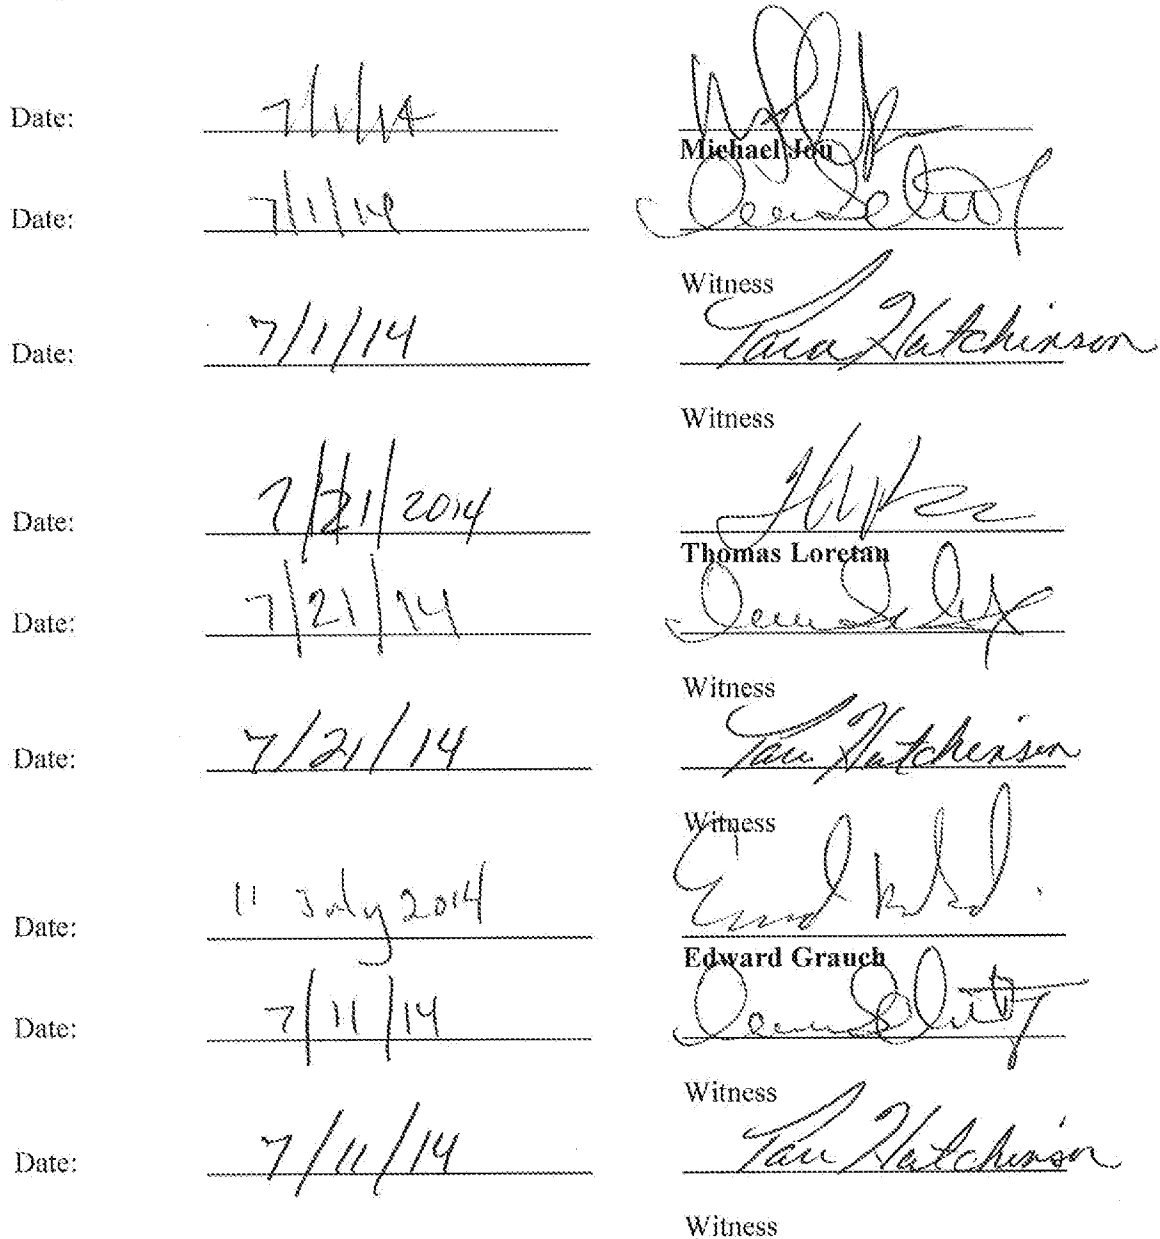 Date: 7/1/14
Michael Jou
Date: 7/1/14
Witness
Date: 7/1/14 Tara Hutchinson
Witness
Date: 7/21/2014
Thomas Loretan
Date: 7/21/14
Witness
Date: 7/21/14 Tara Hutchinson
Witness
Date: 11 July 2014
Edward Grauch
Date: 7/11/14
Witness
Date: 7/11/14 Tara Hutchinson
Witness